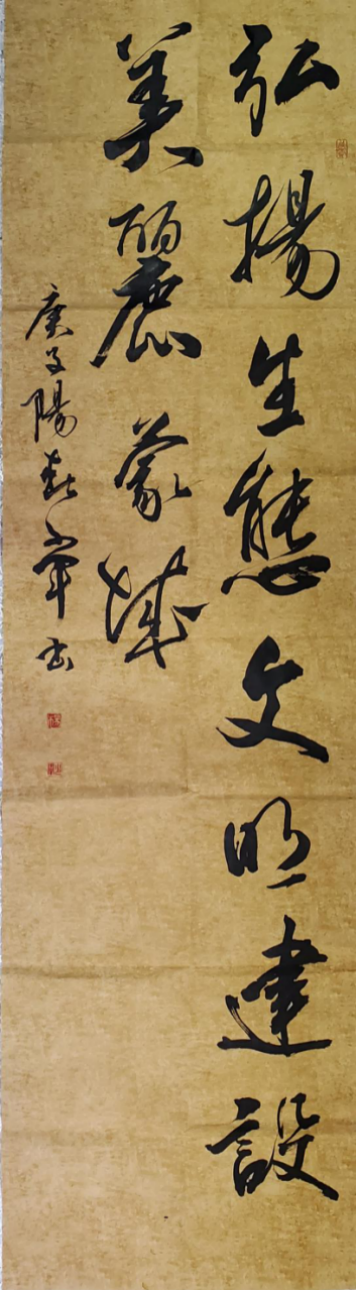 弘揚生態文明建設
美麗蒙城
庚子陽春軍书